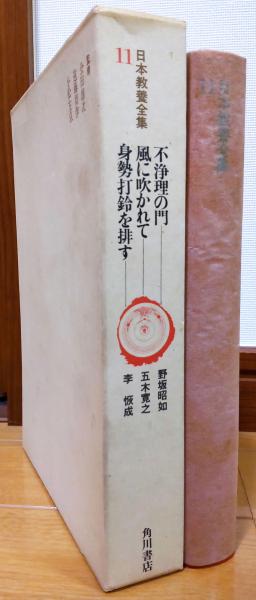 11
日本教養全集
不浄理の門
風に吹かれて
身勢打鈴を排す
野坂昭如
五木寛之
李恢成
角川書店
11
日本教養全集